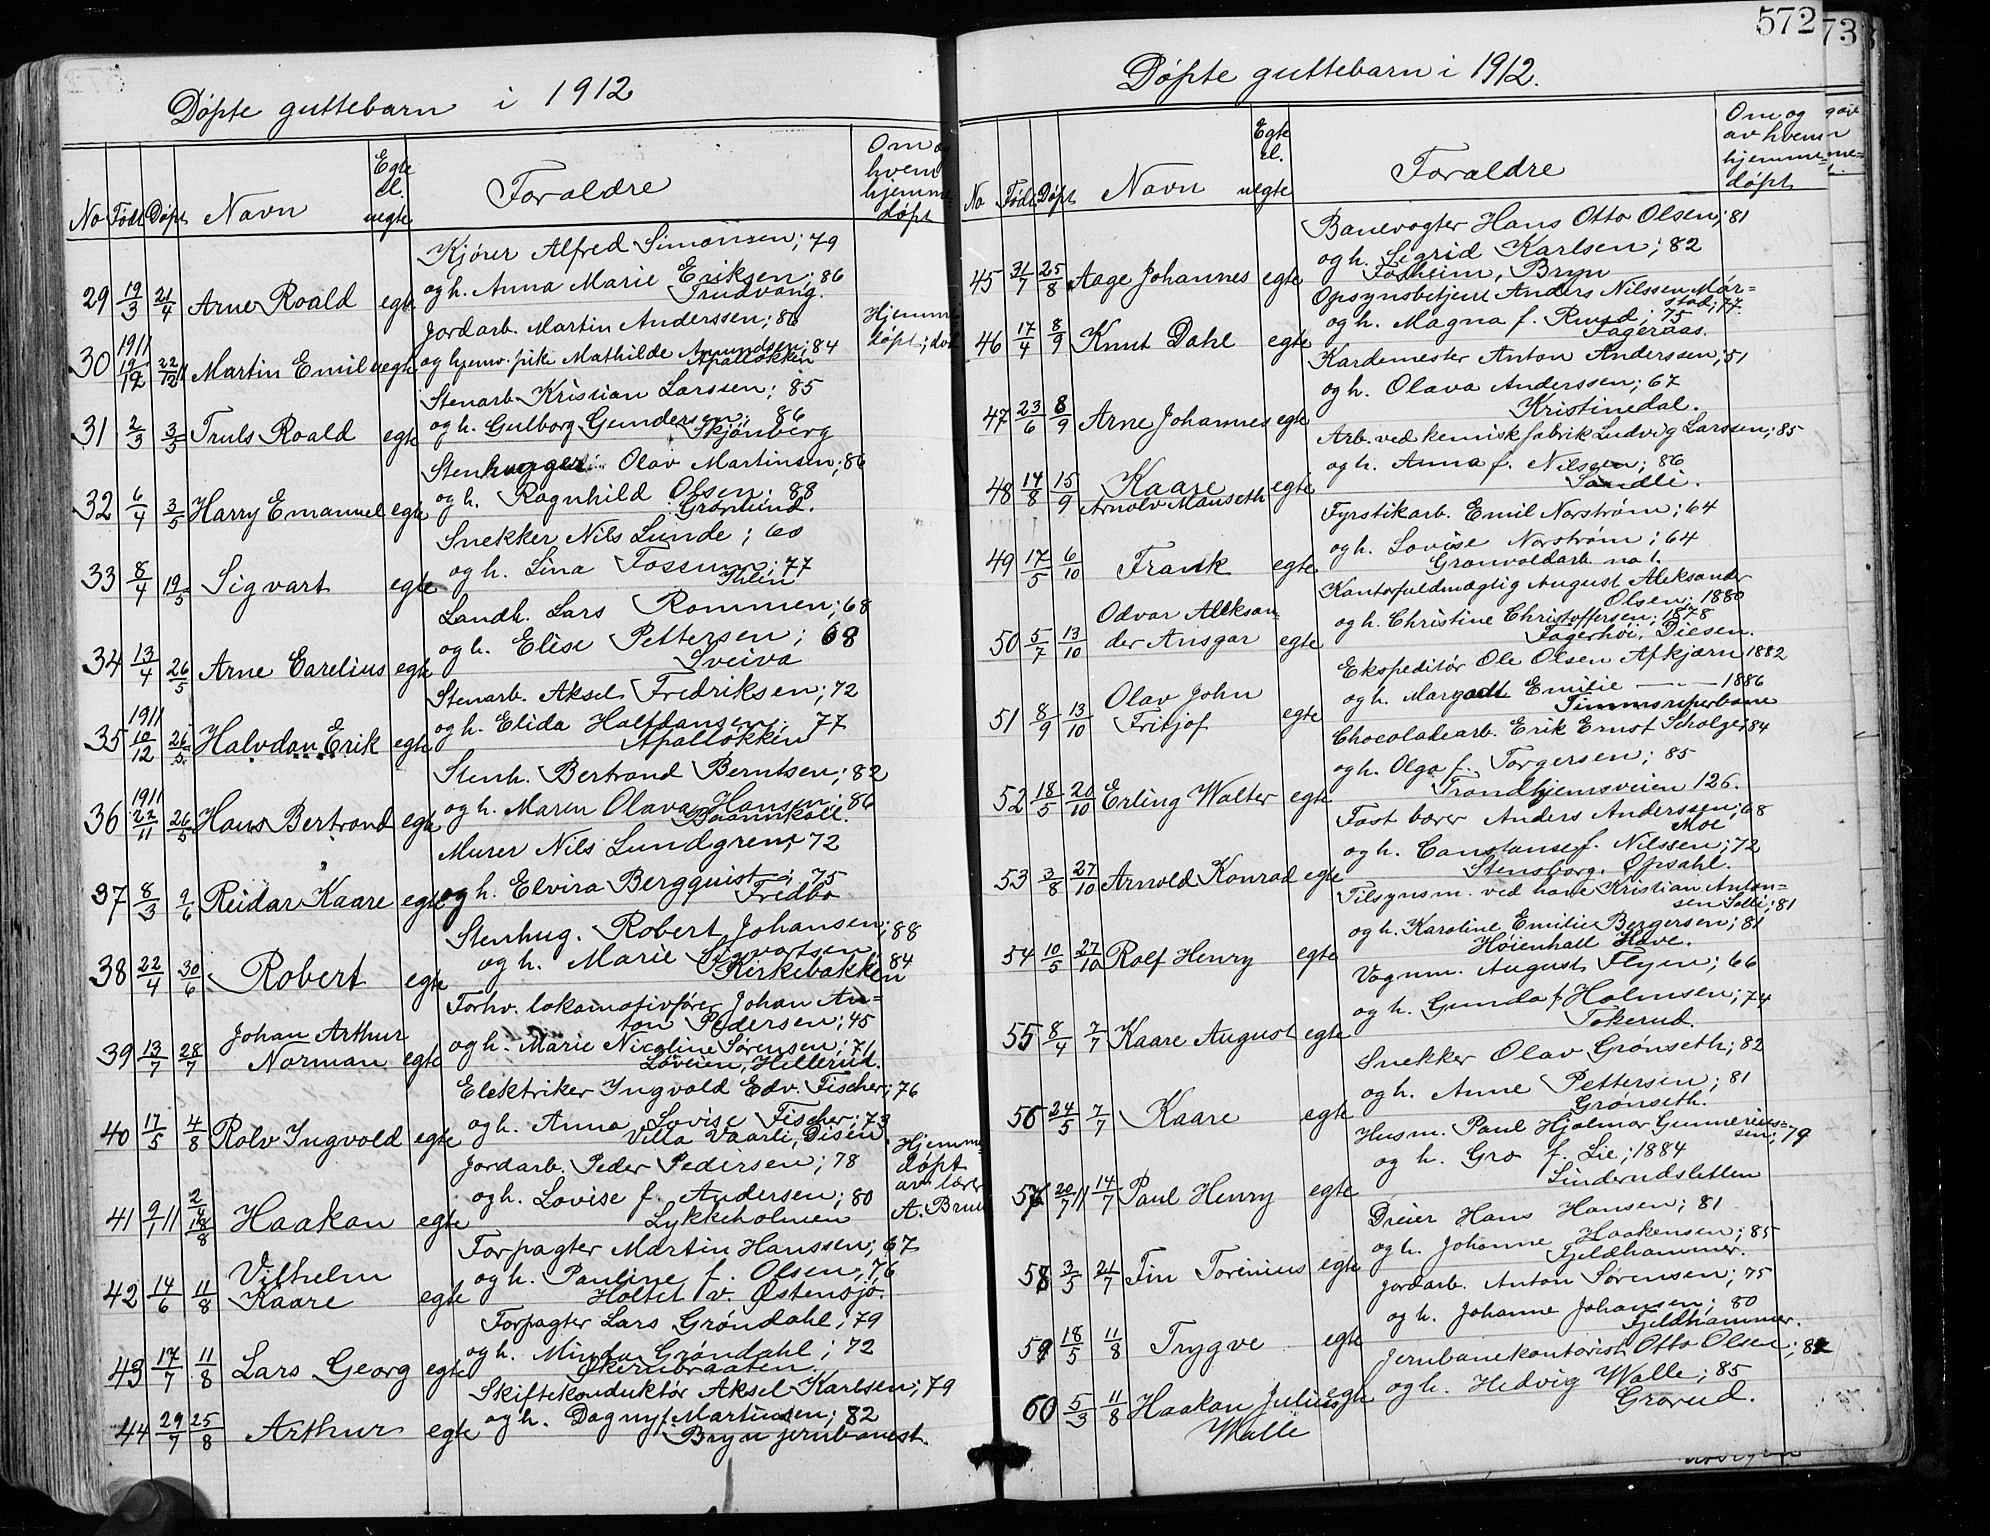 572
73
Døpte guttebarn i 1912
No Født Døpt Navn Egte el. uegte Foraldre Om og hvem hjemme døpt
Kjører Alfred Simonsen; 79
29 19/3 21/4 Arne Roald egte og h. Anna Marie Eriksen; 86
Trudvang.
Jordarb. Martin Anderssen; 86 Hjemme
1911
30 12/12 22/12 11 Martin Emil uegte og hjemv. pike Mathilde Amundsen; 84 døpt; død
Apalløkken
Stenarb. Kristian Larssen; 85
31 2/3 3/5 Truls Roald egte og h. Gulborg Gundersen; 86
Skjønberg
Stenhugger Olav Martinsen; 86
32 6/4 3/5 Harry Emanuel egte og h. Ragnhild Olsen; 88
Grønlund.
Snekker Nils Lunde; 60
33 8/4 19/5 Sigvart egte og h. Lina Fossum; 77
Ihlen
Landh. Lars Rommen; 68
34 13/4 26/5 Arne Carelius egte og h. Elise Pettersen; 68
Sveiva
Stenarb. Aksel Fredriksen; 72
1911
35 10/12 26/5 Halvdan Erik egte og h. Elida Halfdansen; 77
Apalløkken
Stenh. Bertrand Berntsen; 82
1911
36 22/11 26/5 Hans Bertrand egte og h. Maren Olava Hansen; 86
Bånnkall.
Murer Nils Lundgren; 72
37 8/3 9/6 Reidar Kaare egte og h. Elvira Bergquist; 75
Fredbo
Stenhug. Robert Johansen; 88
38 22/4 30/6 Robert egte og h. Marie Sigvartsen 84
Kirkebakken
Forhv. lokomotivfører Johan An=
ton Pedersen; 45
Johan Arthur
39 13/7 28/7 Norman egte og h. Marie Nicoline Sørensen; 71
Løveien, Hellerud.
Elektriker Ingvald Edv. Fischer; 76
40 17/5 4/8 Rolv Ingvold egte og h. Anna Lovise Fischer; 73
Villa Vaarli, Disen
Jordarb. Peder Pedersen; 78 Hjemme døpt av lærer A. Bruu
41 9/1 11 2/4 18/8 Haakon egte og h. Lovise f. Andersen; 80
Lykkeholmen
Forpagter Martin Hanssen; 67
Vilhelm
42 14/6 11/8 Kaare egte og h. Pauline f. Olsen; 76
Holtet v. Østensjø.
Forpagter Lars Grøndahl; 79
43 17/7 11/8 Lars Georg egte og h. Minda Grøndahl; 72
Skernbraaten.
Skiftekonduktør Aksel Karlsen; 79
44 29/7 25/8 Arthur egte og h. Dagny f. Martinsen; 82
Bryn jernbanest.
Døpte guttebarn i 1912.
No Født Døpt Navn Egte el. uegte Foraldre Om og av hvem hjemme= døpt
Banevogter Hans Otto Olsen; 81
45 31/7 25/8 Aage Johannes egte og h. Sigrid Karlsen; 82
Fosheim, Bryn
Opsynsbetjent Anders Nilssen Mør=
stad; 77.
46 17/4 8/9 Knut Dahl egte og h. Magna f. Ruud; 75
Fageraas.
Kardemester Anton Anderssen; 51
47 23/6 8/9 Arne Johannes egte og h. Olava Anderssen; 67
Kristinedal.
Arb. ved kemisk fabrik Ludvig Larssen; 85
48 14/8 15/9 Kaare egte og h. Anna f. Nilssen; 86
Arnolv Manseth Sandli.
Fyrstikarb. Emil Norstrøm; 64
49 17/5 6/10 Frank egte og h. Lovise Norstrøm; 64
Grønvoldarb. no 1.
Kontorfuldmægtig August Aleksander
Olsen; 1880
50 5/7 13/10 Odvar Aleksan= der Ansgar egte og h. Christine Christoffersen; 1878
Fagerhøi, Diesen.
Ekspeditør Ole Olsen Afkjærn 1882
51 8/9 13/10 Olav John Fritjof egte og h. Margadt Emilie — 1886
Timmsreperbane
Chocoladearb. Erik Ernst Scholze; 84
52 18/5 20/10 Erling Walter egte og h. Olga f. Torgersen; 85
Trondhjemsveien 126.
Fast bærer Anders Anderssen; 68
Moe
53 3/8 27/10 Arnold Konrad egte og h. Constanse f. Nilssen; 72
Stensborg. Opsahl.
Tilsynsm. ved have Kristian Anton=
sen Solli; 81
54 10/5 27/10 Rolf Henry egte og h. Karoline Emilie Bergersen; 81
Høienhall Have.
Vognm. August Flyen; 66
55 8/4 7/7 Kaare August egte og h. Gunda f. Holmsen; 74
Tokerud.
Snekker Olav Grønseth; 82
56 24/5 7/7 Kaare egte og h. Anne Pettersen; 81
Grønseth.
Husm. Paul Hjalmar Gunnerius=
sen; 79
57 20/7 11 14/7 Paul Henry egte og h. Gro f. Lie; 1884
Linderudsletten
Dreier Hans Hansen; 81
58 3/5 21/7 Fin Torenius egte og h. Johanne Haakensen; 85
Fjeldhammer.
Jordarb. Anton Sørensen; 75
59 18/5 11/8 Trygve egte og h. Johanne Johansen; 80
Fjeldhammer.
Jernbanekontorist Otto Olsen; 82
60 5/3 11/8 Haakon Julius egte og h. Hedvig Walle; 85
Walle Grorud.